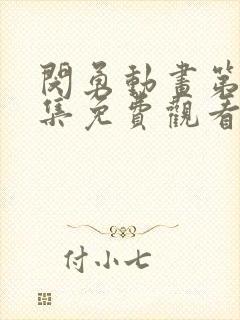 閃勇動畫第
集免費觀看
付小七